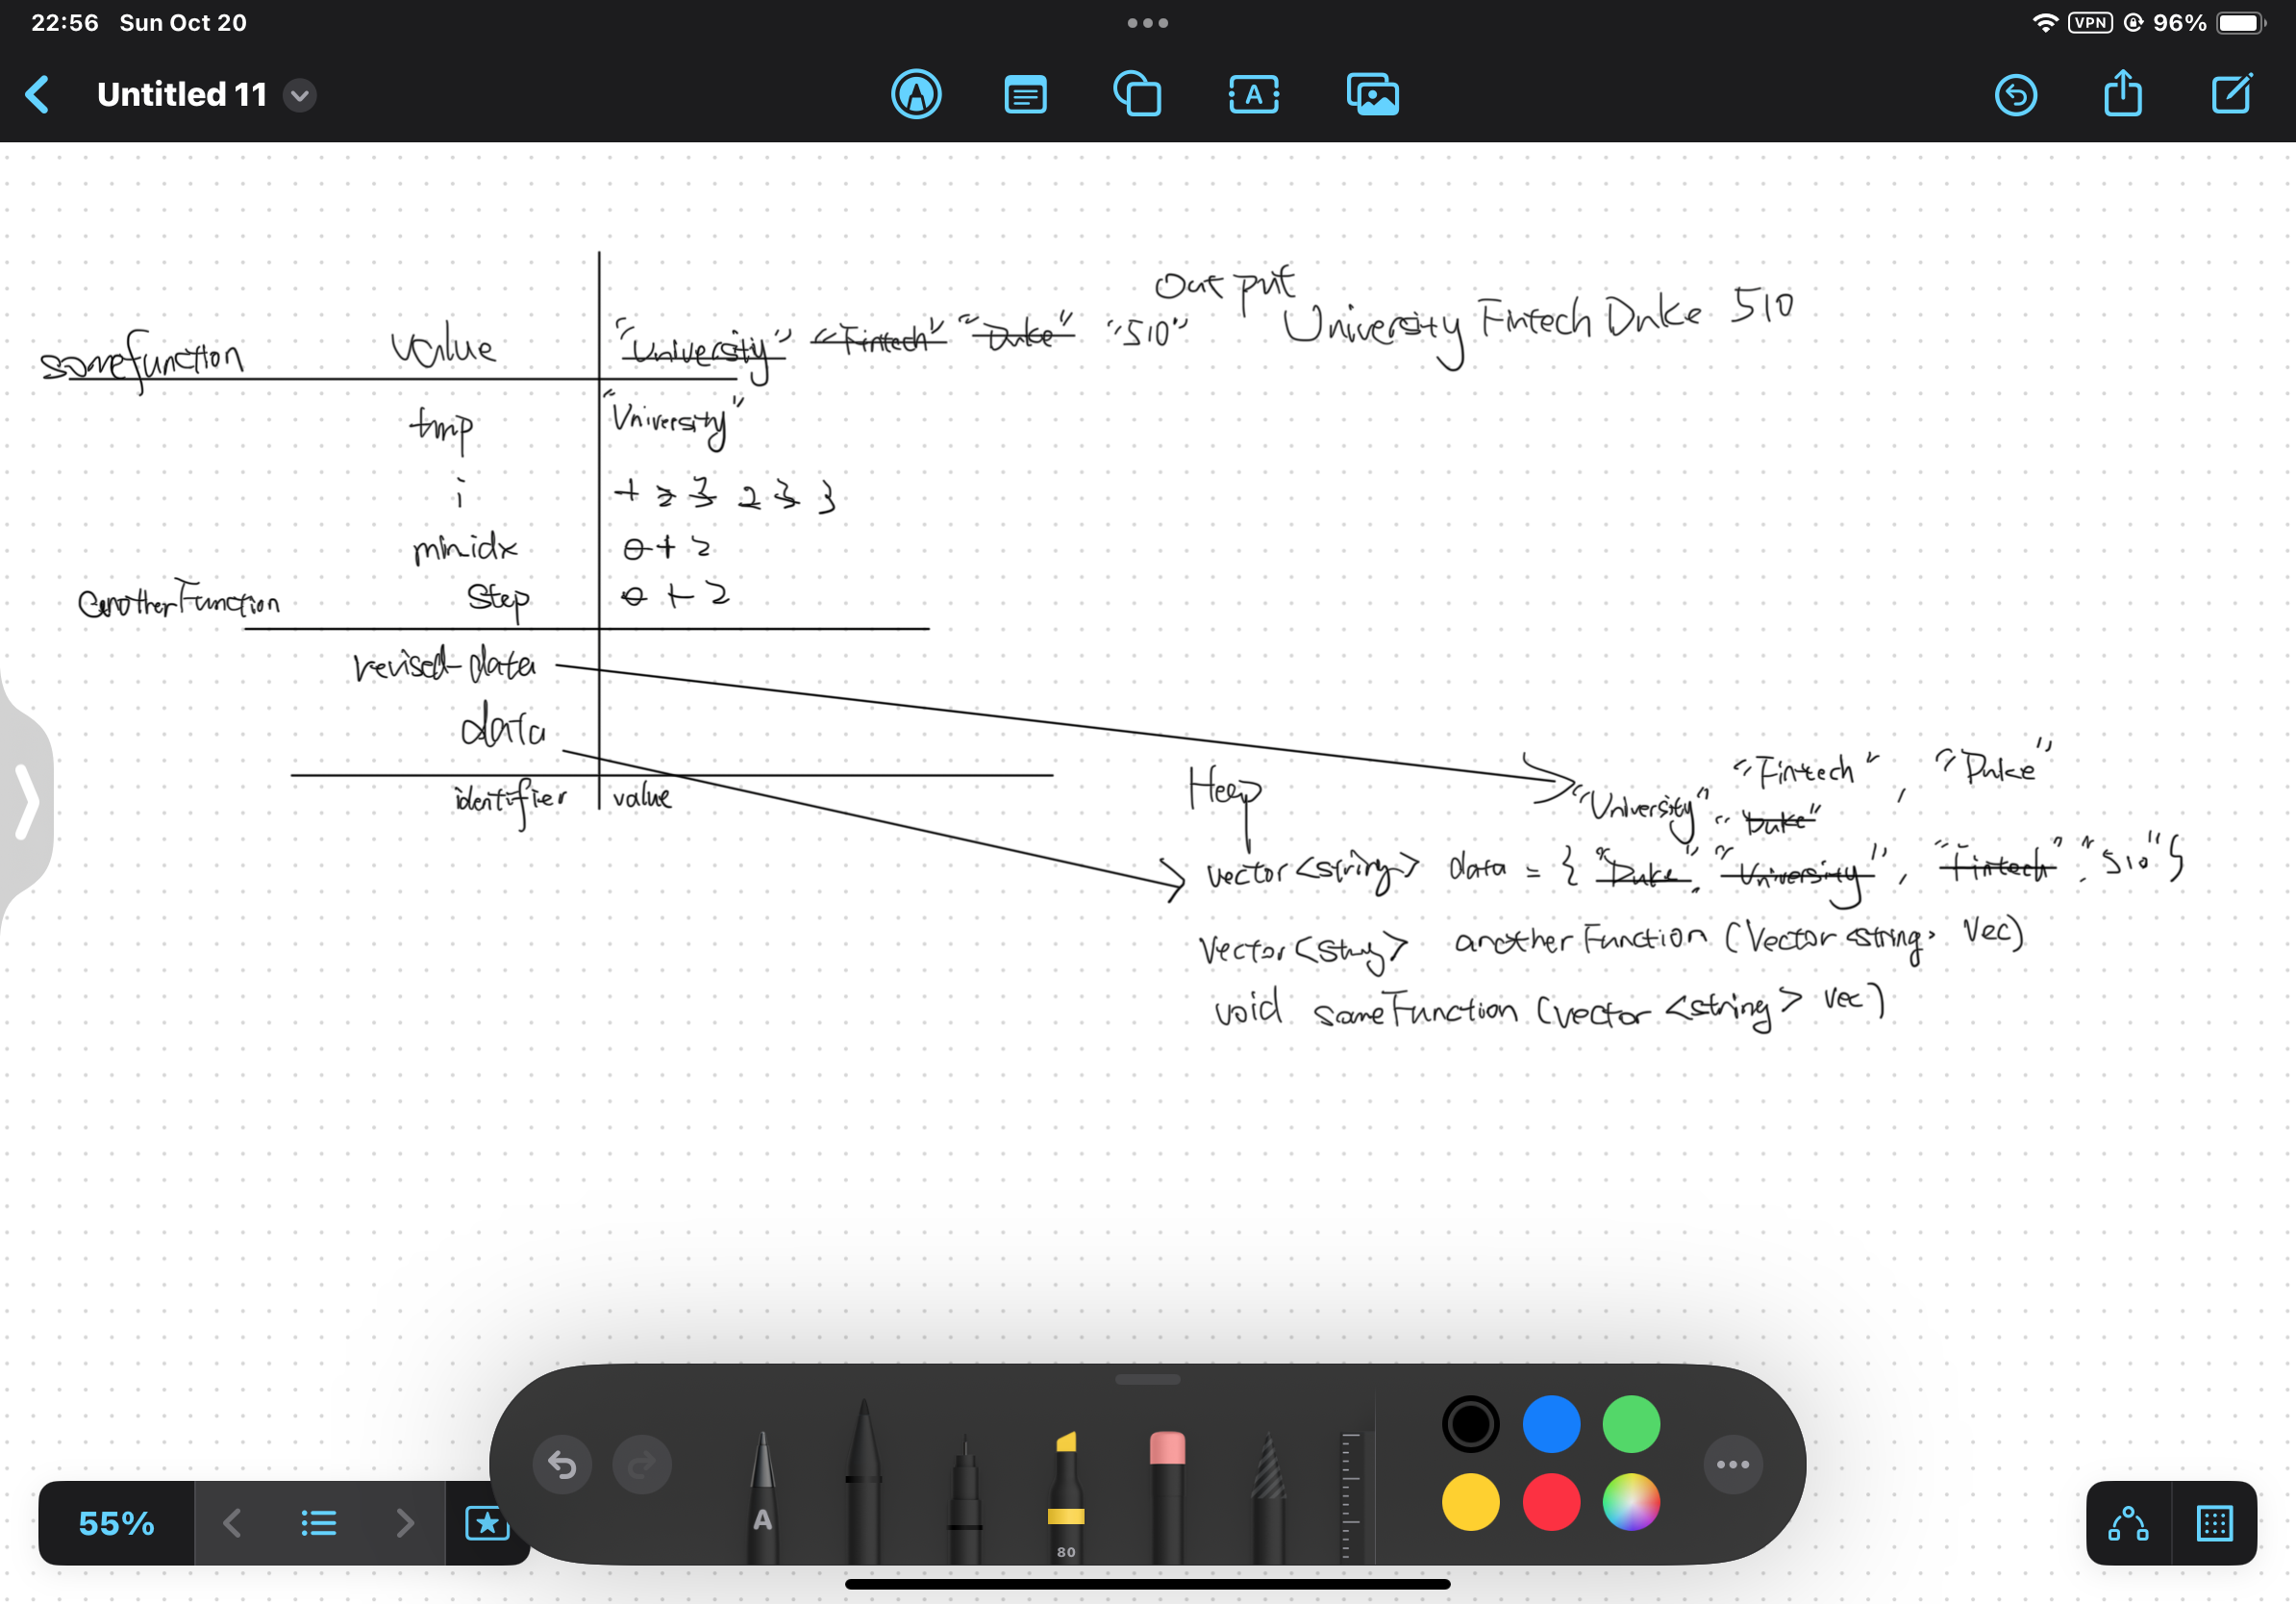 22:56 Sun Oct 20
VPN 96%
Untitled 11
A
Output
somefunction value "University" "Fintech" "Duke" "510" University Fintech Duke 510
tmp "University"
i 1 2 3 2 3 3
minidx 0 1 2
anotherFunction step 0 1 2
revised-data
data
identifier value
Heap
"Fintech" , "Duke"
"University" "Duke"
vector<string> data = { "Duke", "University", "Fintech", "510"}
Vector<string> another Function (Vector<string> Vec)
void some Function (vector <string> vec)
55%
A
80